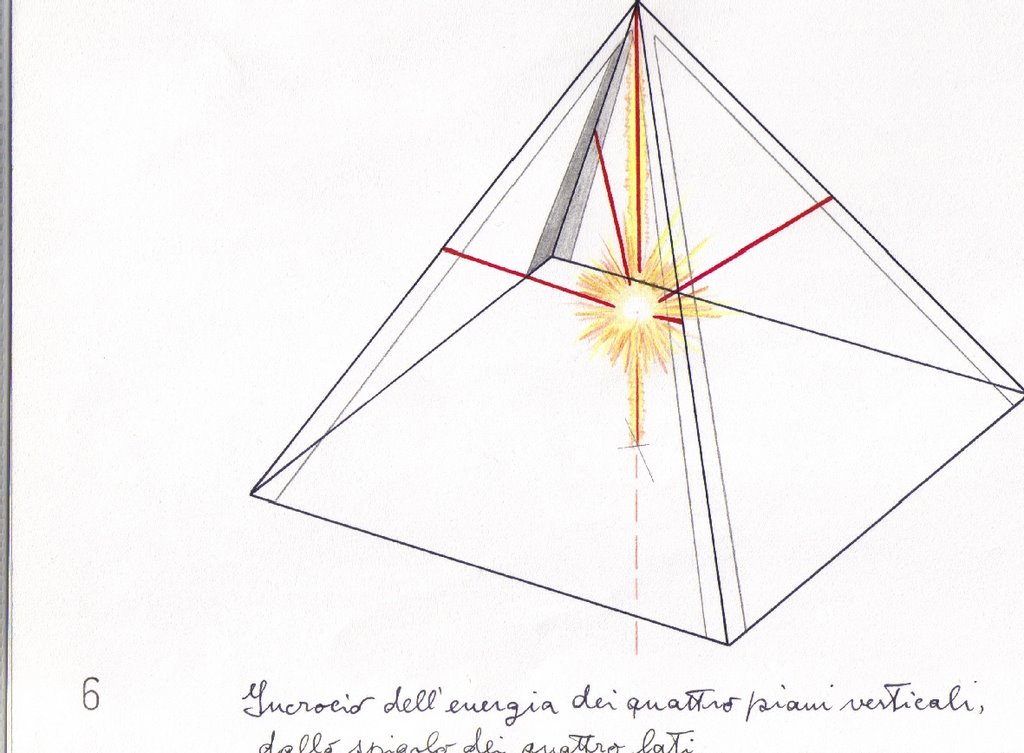 6
Incrocio dell'energia dei quattro piani verticali,
dallo spigolo dei quattro lati